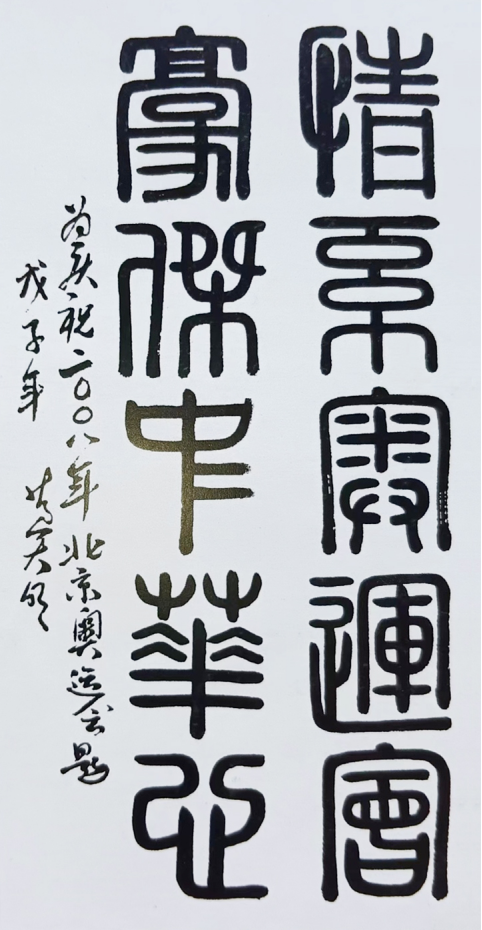 情系奧運會
豪傑中華心
为庆祝二〇〇八年北京奥运会题
戊子年